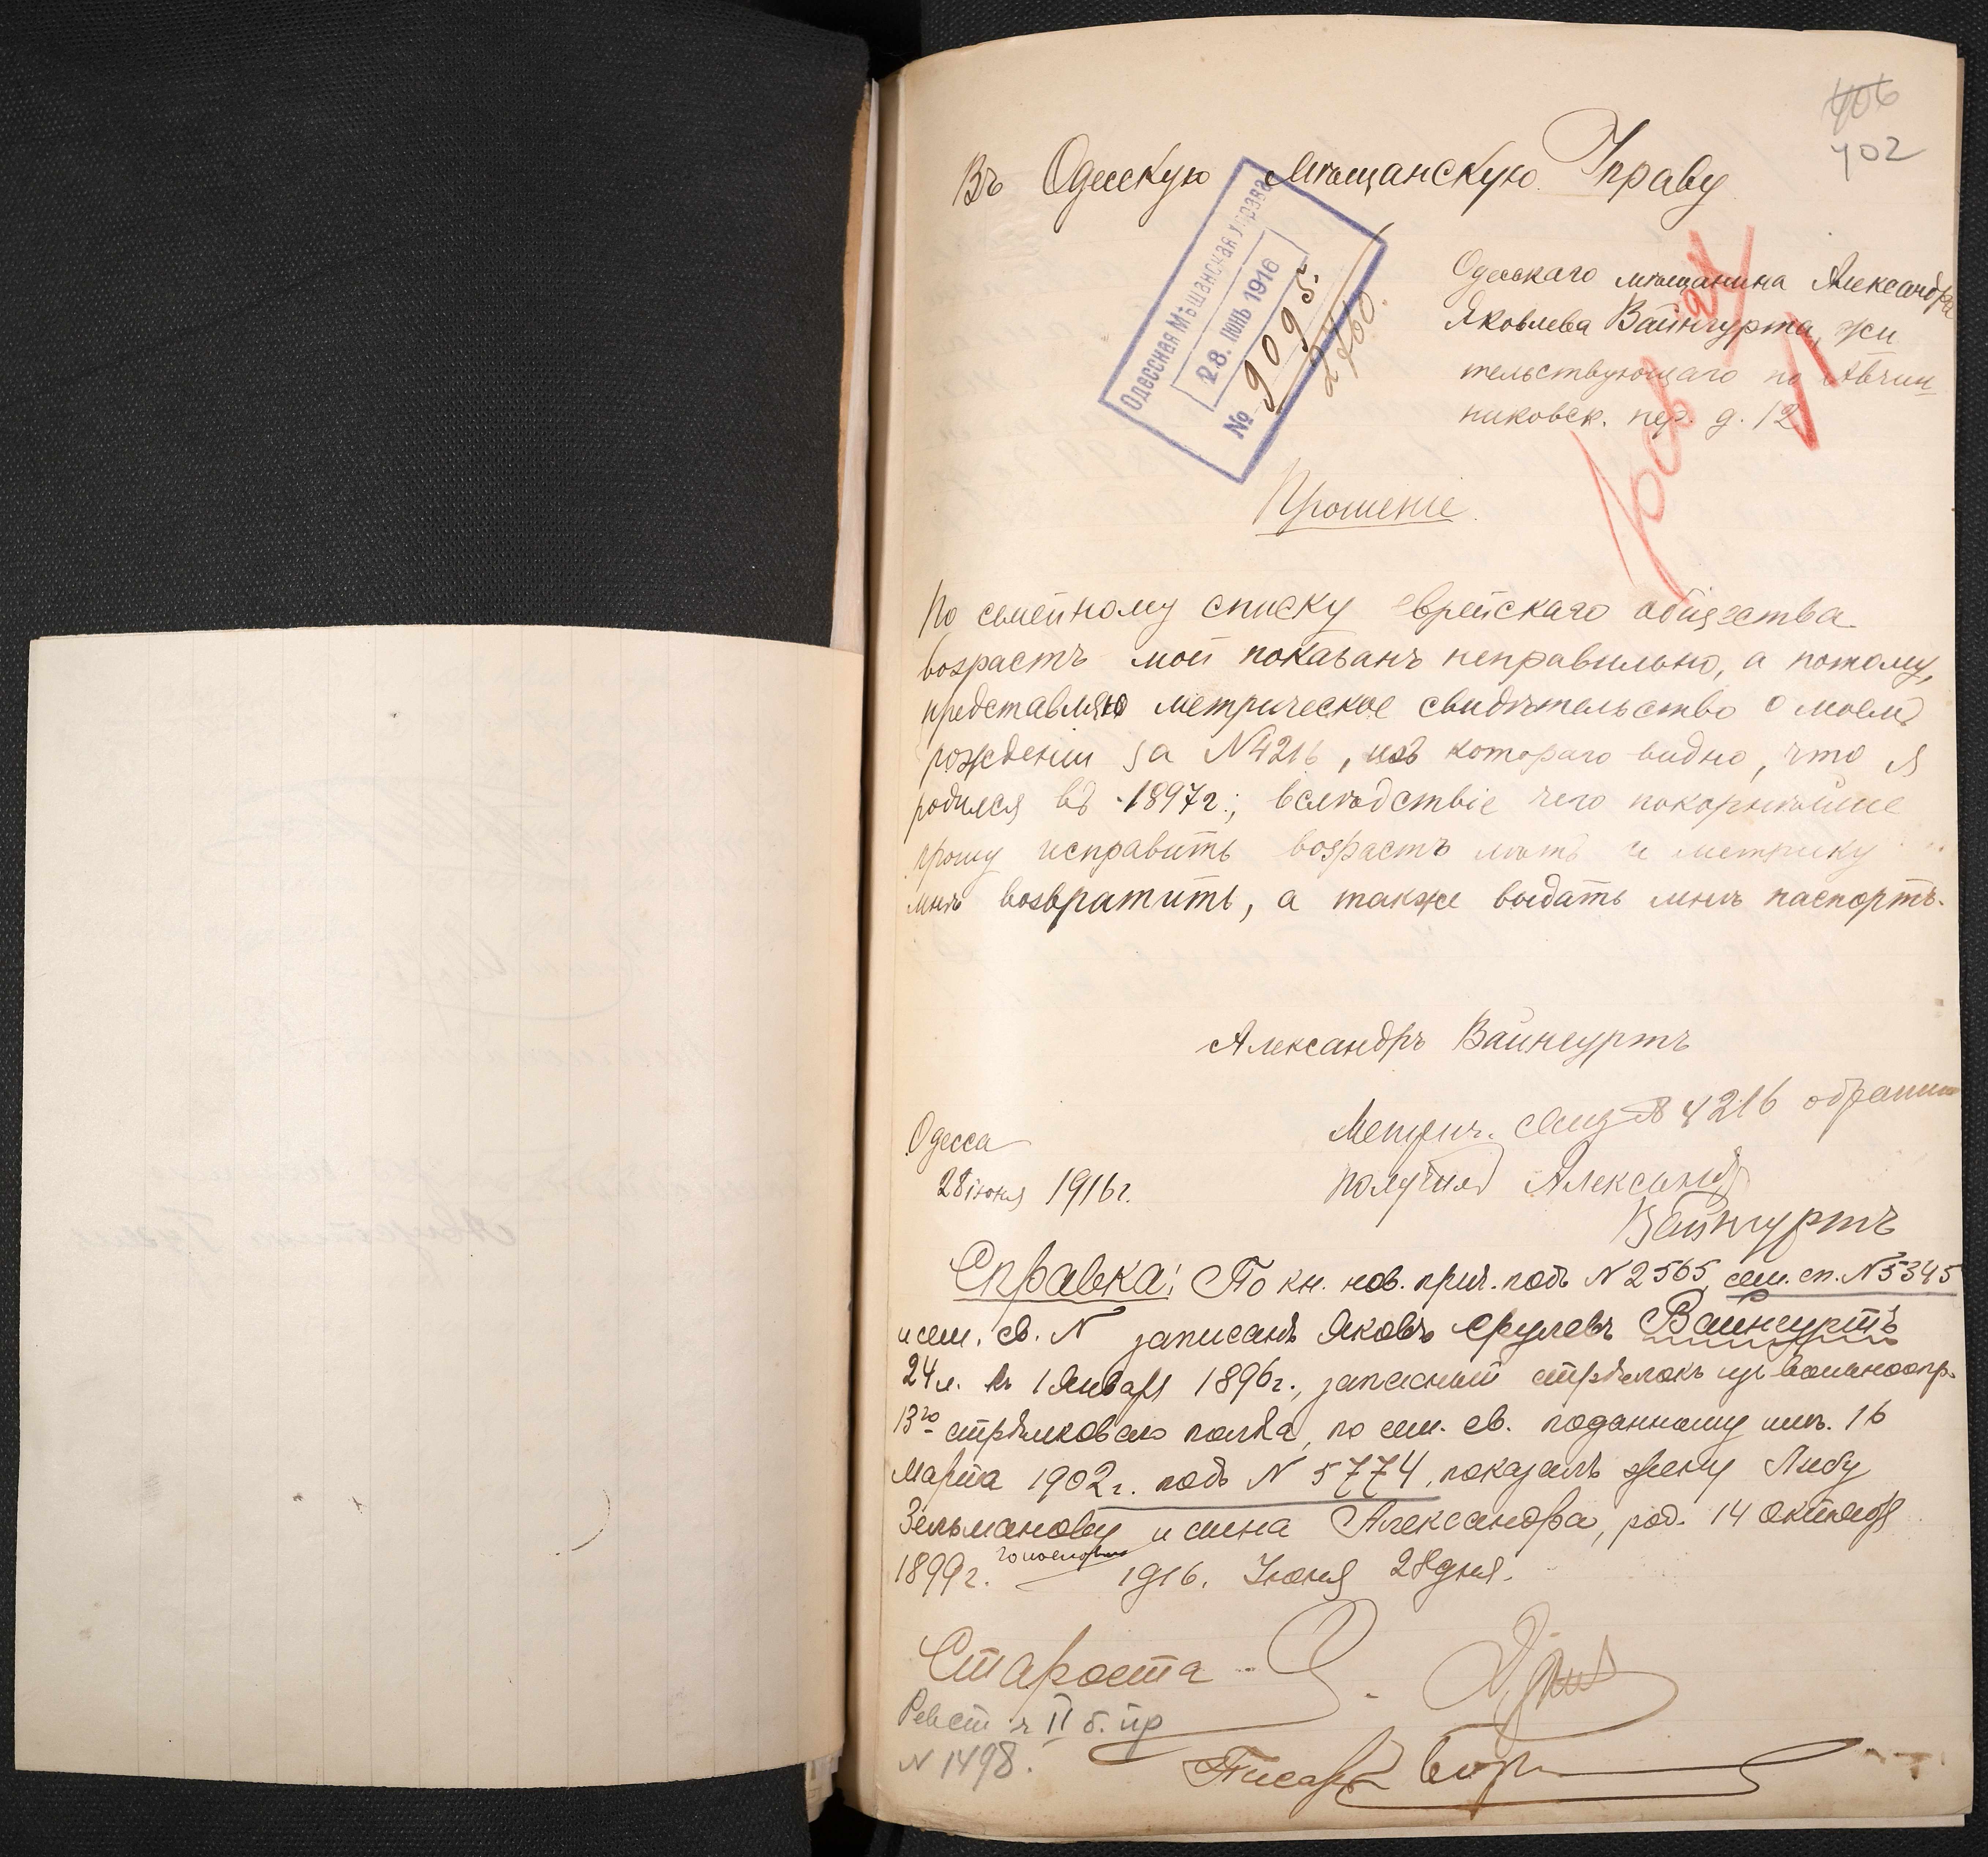 406
402
Въ Одесскую Мѣщанскую Управу
Одесская Мѣщанская управа
28. ІЮНЬ 1916
№ 9095.
2760.
Одесскаго мѣщанина Александра
Яковлева Вайнгурта, жи
тельствующаго по Авчин
никовск. пер. д. 12
Прошеніе
По семейному списку еврейскаго общества
возрастъ мой показанъ неправильно, а потому,
представляю метрическое свидѣтельство о моемъ
рожденіи за N4216, изъ котораго видно, что я
родился въ 1897г.; вслѣдствіе чего покорнѣйше
прошу исправить возрастъ и метрику
мнѣ возвратить, а также выдать мнѣ паспортъ.
Александръ Вайнгуртъ
Одесса
28 іюня 1916г.
Метрич. свид № 4216 обратно
получилъ Александр
Вайнгуртъ
Справка: По кн. нов. прич. подъ N 2565, сем. сп. N 5345
и сем. св. N записанъ Яковъ Срулевъ Вайнгуртъ
24 л. къ 1 Января 1896г., запасный стрѣлокъ изъ вольноопр.
13го стрѣлковаго полка, по сем. св. поданному имъ 16
Марта 1902г. подъ N 5774, показалъ жену Либу
Зельманову и сына Александра, род. 14 Октября
1899г. 1916. Іюня 28 дня.
Староста
II б. пр
N 1498.
Писарь